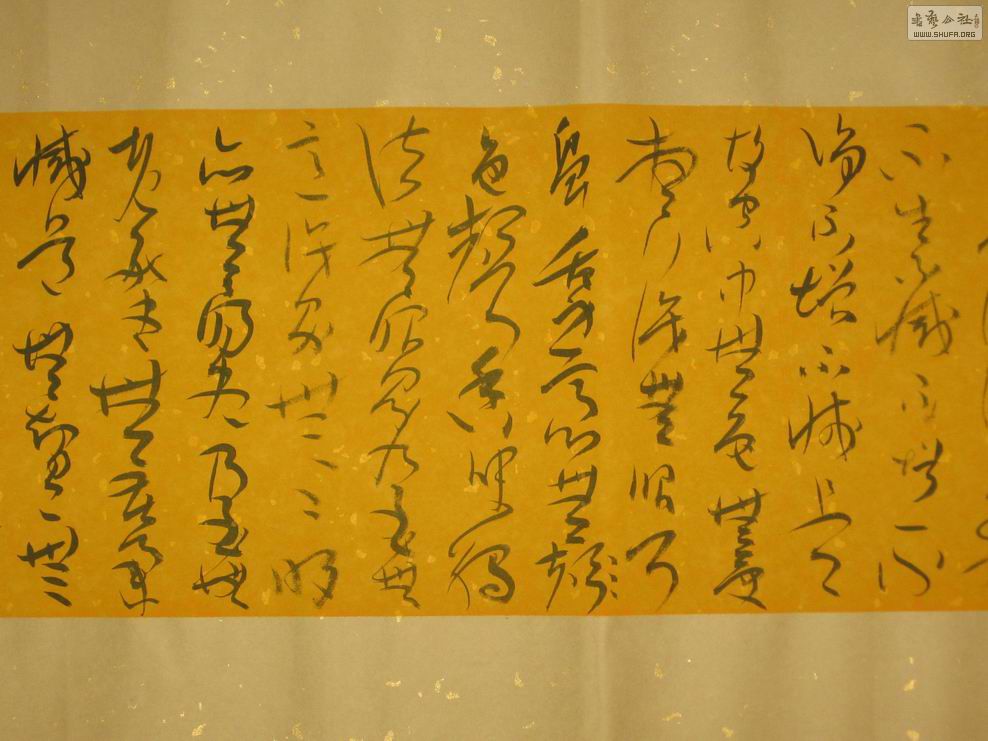 不生不滅不垢不
淨不增不減是
故空中無色無受
想行識無眼耳
鼻舌身意無聲
色聲香味觸
法無眼界乃至無
意識界無〻明
亦無〻明盡乃至無
老死無苦集
滅道無智亦無
書藝公社
WWW.SHUFA.ORG